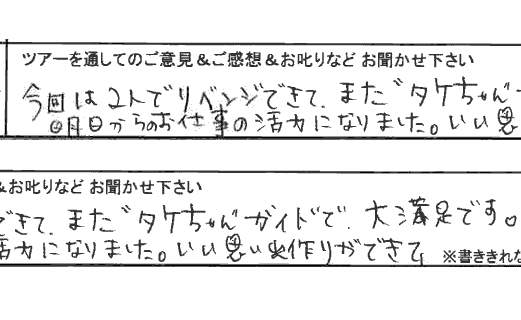 ツアーを通してのご意見&ご感想&お叱りなど お聞かせ下さい
今回は2人でリベンジできて、また"タケちゃん"
明日からのお仕事の活力になりました。いい思
&お叱りなど お聞かせ下さい
できて、また"タケちゃん"ガイドで、大満足です。
活力になりました。いい思い出作りができて
※書ききれな